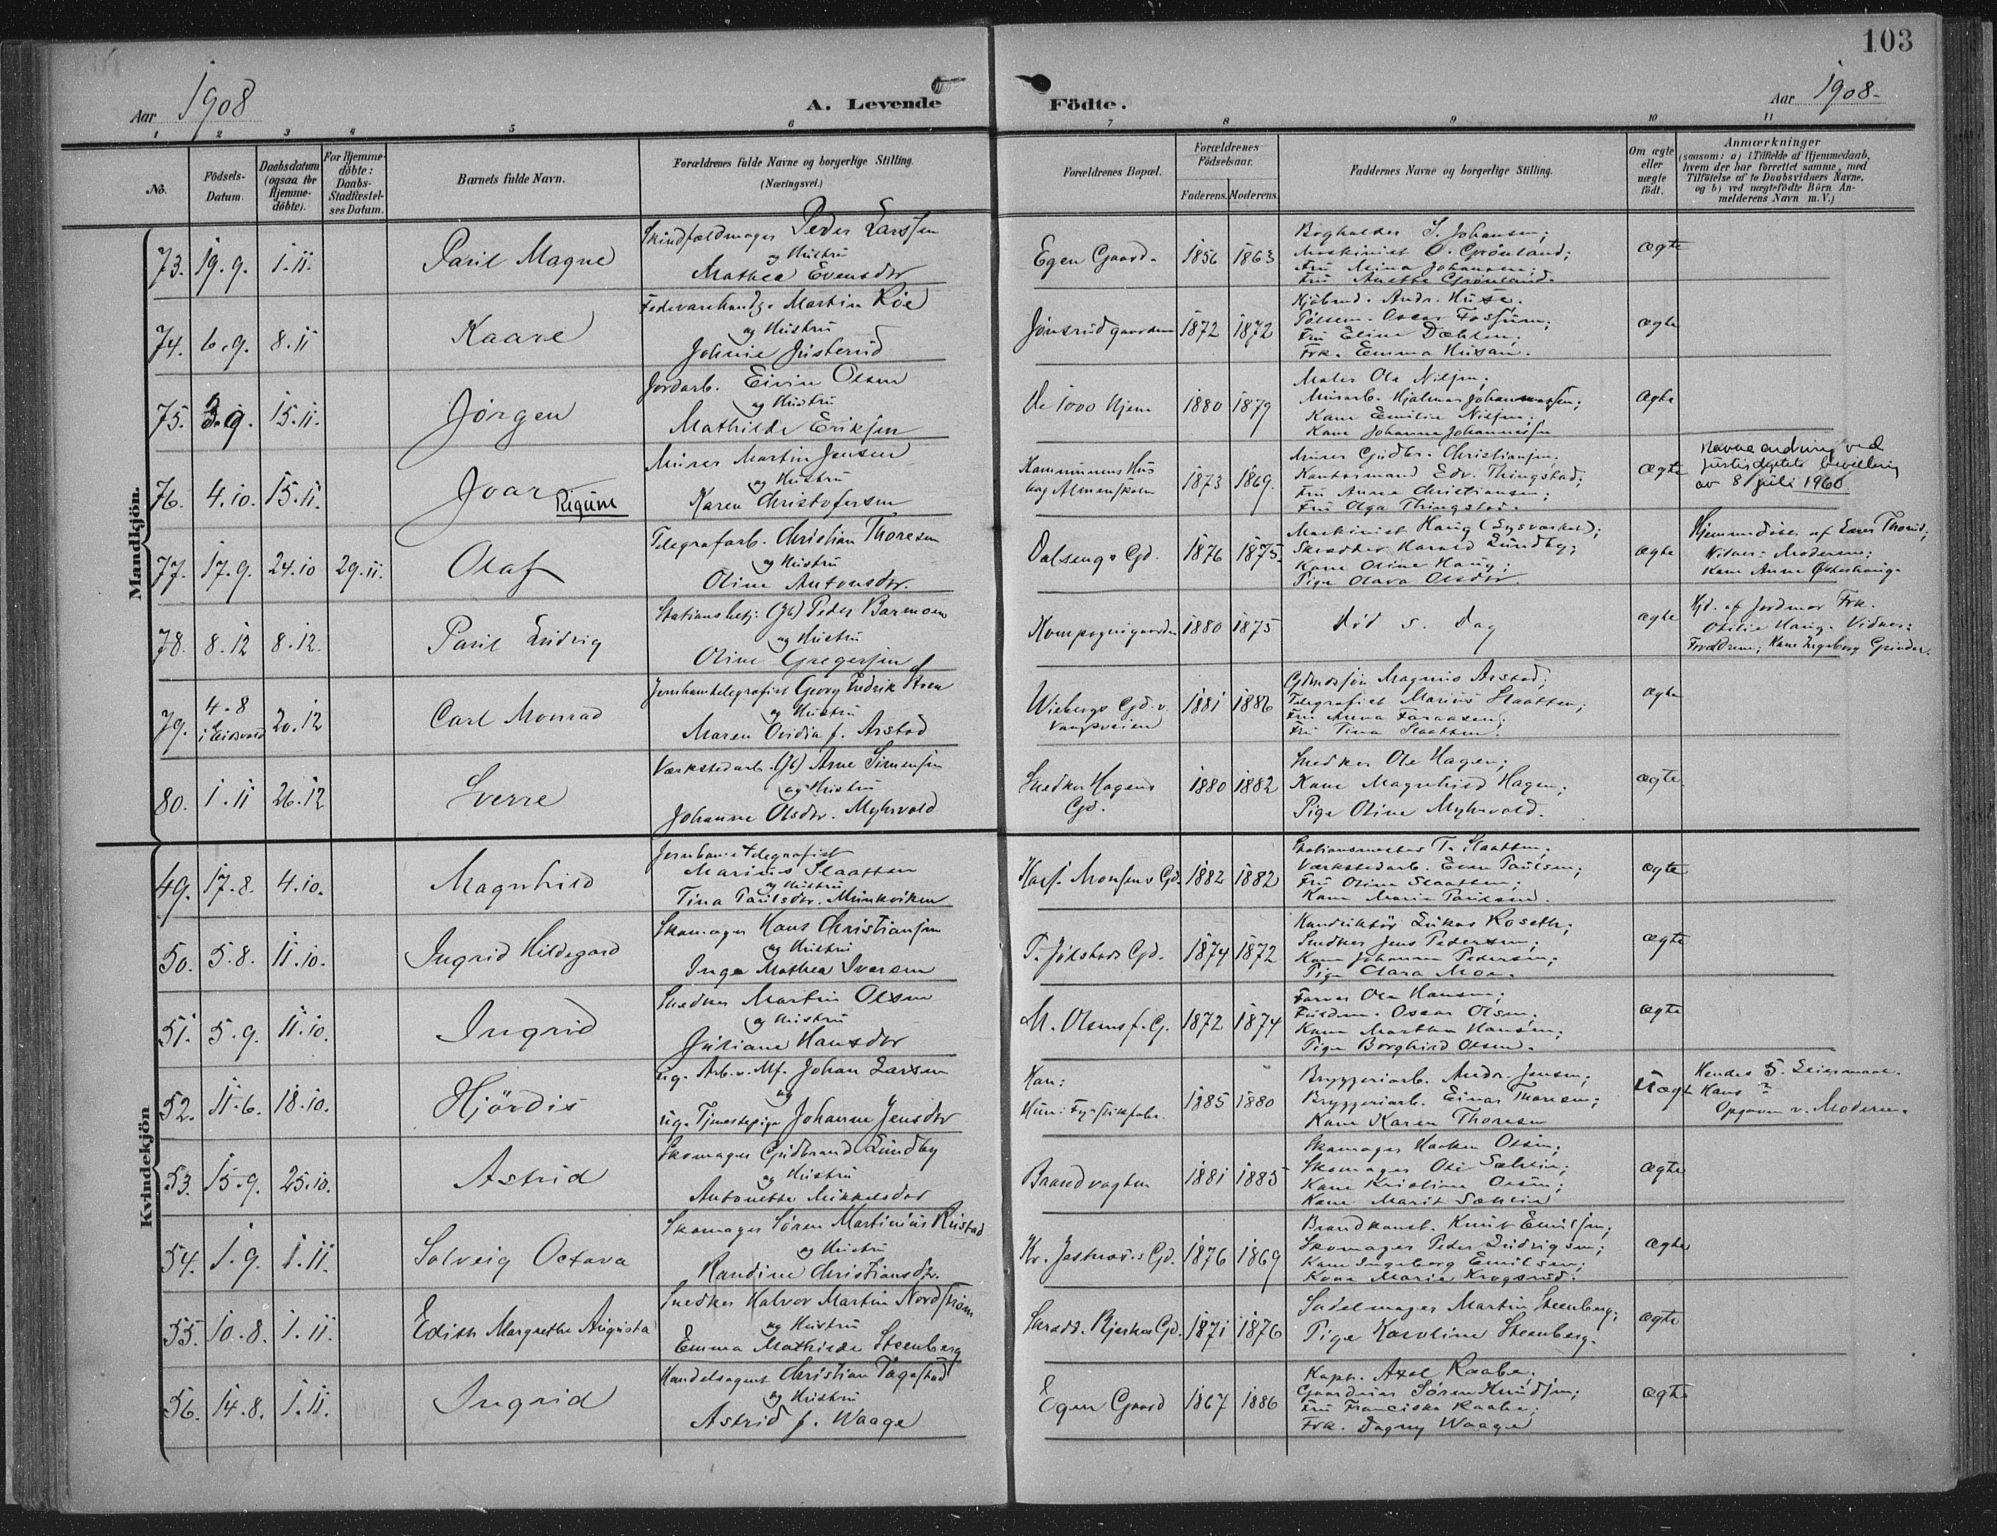 103
Aar 1908
A. Levende Födte.
Aar 1908.
1 2 3 4 5 6 7 8 9 10 11
No.
Födsels-Datum.
Daabsdatum (ogsaa for Hjemme-döbte).
For Hjemme-döbte: Daabs-Stadfæstel-ses Datum.
Barnets fulde Navn.
Forældrenes fulde Navne og borgerlige Stilling. (Næringsvei.)
Forældrenes Bopæl.
Forældrenes Födselsaar.
Faderens. Moderens.
Faddernes Navne og borgerlige Stilling.
Om ægte eller uægte födt.
Anmærkninger
(saasom: a) i Tilfælde af Hjemmedaab,
hvem der har forrettet samme, med
Tilföielse af to Daabsvidners Navne,
og b) ved uægtefödte Börn An-
melderens Navn m. V.)
Mandkjön.
73. 19.9. 1.11. Paul Magne
Skindfældmager Peder Larssen
og Hustru
Mathea Evensdtr
Egen Gaard. 1856 1863
S. Johansen;
Maskinist O. Grønland;
Fru Mina Johansen;
Fru Anette Grønland.
ægte
74. 6.9. 8.11 Kaare
Martin Röe
og Hustru
Johnie Justerud
Jønsrudgaarden 1872 1872
Kjöbmd. Andr. Huse.
Oscar Fossum;
Fru Eline Dæhlen;
Frk. Emma Husan.
ægte
75. 3.9. 15.11. Jørgen
Jordarb. Eivin Olsen
og Hustru
Mathilde Eriksen
De 1000 Hjem 1880 1879
Maler Ole Nilsen;
Murarb. Hjalmar Johannessen;
Kone Emilie Nilsen;
Kone Johanne Johannessen
ægte
76. 4.10. 15.11. Ivar
Rigum
Murer Martin Jensen
og Hustru
Karen Christofersen
Kommunens Hus
bag Almenskolen 1873 1869.
Murer Gudbr. Christiansen;
Kontormand Edv. Thingstad;
Fru Anna Christiansen;
Fru Olga Thingstad.
ægte
Navneendring ved
Justisdeptets bevilling
av 8 juli 1960
77. 17.9. 24.10 29.11. Olaf
Telegrafarb. Christian Thoresen
og Hustru
Oline Antonsdtr.
Dalsengs Gd. 1876 1875.
Maskinist Haug (Lysværket);
Skrædder Harald Lundby;
Kone Oline Haug;
Pige Olava Olsdtr.
ægte
Hjemmedöbt af
Vidner: Moderen;
Kone Anne Østerhaug.
78. 8.12 8.12. Paul Ludvig
Stationsbetj. (Jb) Peder Barmoen
og Hustru
Oline Gregersen
Kompagnigaarden 1880 1875
Död s. Dag
ægte
Hjd. af Jordmor Frk.
Otilie Haug. Vidner:
Forældrene; Kone Ingeborg Grinder.
79. 4.8 i Eidsvold 20.12 Carl Monrad
Jernbanetelegrafist Georg Fredrik
og Hustru
Maren Ovidia f. Arstad
Wiebergs Gd. v.
Vangsveien 1881 1886
Gdmdssøn Magnus Arstad;
Telegrafist Marius Slaatten;
Fru Anna Faraasen;
Fru Tina Slaatten.
ægte
80. 1.11 26.12 Sverre
Værkstedarb. (Jb) Arne Simensen
og Hustru
Johanne Olsdtr. Myhrvold
Snedker Hagens
Gd. 1880 1882
Snedker Ole Hagen;
Kone Magnhild Hagen;
Pige Oline Myhrvold.
ægte.
Kvindekjön
49. 17.8. 4.10. Magnhild
Jernbanetelegrafist
Marius Slaatten
og Hustru
Tina Paulsdtr. Munkviken
Monsens Gd. 1882 1882
Stationsmester T. Slaatten;
Værkstedarb. Even Paulsen;
Fru Oline Slaatten;
Kone Marie Paulsen.
ægte
50. 5.8. 11.10. Ingrid Hildegard
Skomager Hans Christiansen
og Hustru
Inga Mathea Iversen
T. Jølstads Gd. 1874 1872
Konduktør Lukas Roseth;
Snedker Jens Pedersen;
Kone Johanne Pedersen;
Pige Clara Moe.
ægte
51. 5.9. 11.10. Ingrid
Snedker Martin Olsen
og Hustru
Juliane Hansdtr
M. Olsens f. G. 1872 1874
Farver Ole Hansen;
Oscar Olsen.
Kone Marthea Hansen;
Pige Borghild Olsen.
ægte
52. 11.6. 18.10. Hjördis
ug. Arb. v. Mf. Johan Larsen
og
ug. Tjenestepige Johanne Jensdtr
Han:
Hun: Fyrstikfabr. 1885 1880
Bryggeriarb. Andr. Jensen;
Bryggeriarb. Einar Thoresen;
Kone Karen Thoresen
Uægte
Hendes 5. Leiermaal.
Hans ?
Opgaven v. Moderen.
53. 15.9. 25.10. Astrid
Skomager Gudbrand Lundby
og Hustru
Antonette Mikkelsdtr
Brandvagten 1881 1885
Skomager Haaken Olsen;
Skomager Ole Sæhlie;
Kone Kristine Olsen;
Kone Marit Sæhlie
ægte
54. 1.9. 1.11. Solveig Octava
Skomager Søren Martinius Rustad
og Hustru
Randine Christiansdtr.
Kr. Jestnæs's Gd. 1876 1869
Brandkonst. Knut Emilsen;
Skomager Peder Ludvigsen;
Kone Ingeborg Emilsen;
Kone Marie Krogsrud.
ægte
55. 10.8. 1.11. Edith Margrethe Augusta
Snedker Halvor Martin Nordstrøm
og Hustru
Emma Mathilde Steenberg
Skrædd. Bjerkes Gd. 1871 1876
Sadelmager Martin Steenberg;
Pige Karoline Steenberg.
ægte
56. 14.8. 1.11. Ingrid
Handelsagent Christian Tagestad
og Hustru
Astrid f. Waage
Egen Gaard 1867 1886
Kapt. Axel Raabe;
Søren Knudsen;
Fru Franciska Raabe;
Frk. Dagny Waage
ægte